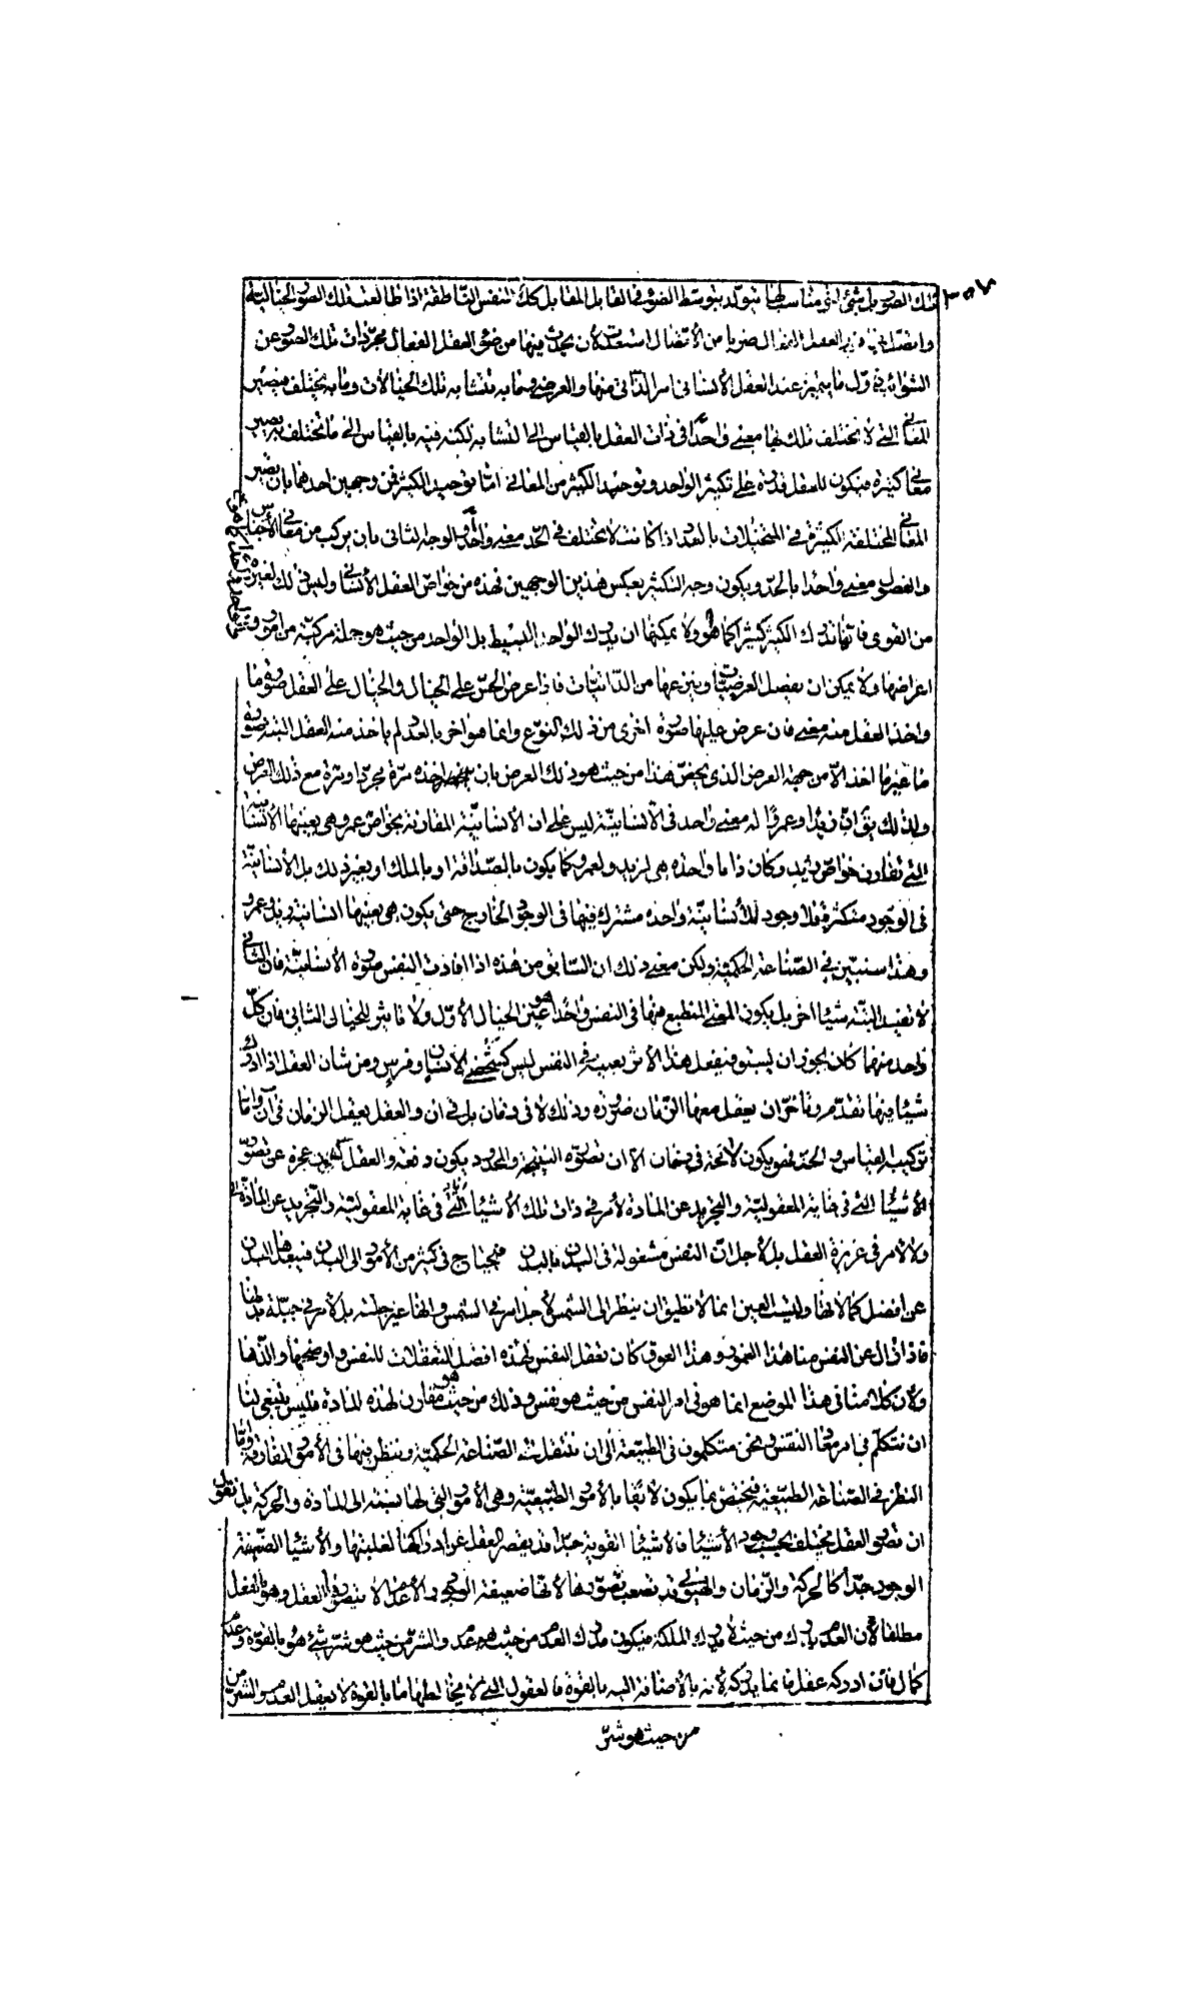 تلك الصور بل شئ اخر مناسب لها يتولد بتوسط الضوء فى القابل المقابل كك النفس الناطقة اذا طالعت تلك الصور الخيالية
واتصل بها نور العقل الفعال ضربا من الاتصال استعدت لان يحدث فيها من ضوء العقل الفعال مجردات تلك الصور عن
الشوائب فاول ما يتميز عند العقل الانسانى امر الذاتى منها والعرضى وما به تتشابه تلك الخيالات وما به يختلف فيصير
المعانى التى لا تختلف تلك بها معنى واحدا فى ذات العقل بالقياس الى التشابه لكنه فيه بالقياس الى ما تختلف به يصير
معانى كثيرة فيكون للعقل قدرة على تكثير الواحد وتوحيد الكثير من المعانى اما توحيد الكثير فمن وجهين احدهما بان يصير
المعانى المختلفة الكثيرة فى المتخيلات بالعدد اذا كانت لا تختلف فى الحد معنى واحدا والوجه الثانى بان يركب من معانى الاجناس
والفصول معنى واحدا بالحد ويكون وجه التكثير بعكس هذين الوجهين فهذه من خواص العقل الانسانى وليس ذلك لغيره
من القوى فانها تدرك الكثير كثيرا كما هو ولا يمكنها ان يدرك الواحد البسيط بل الواحد من حيث هو جملة مركبة من امور و
اعراضها ولا يمكن ان يفصل العرضيات وينزعها من الذاتيات فاذا عرض الحس على الخيال والخيال على العقل صورة ما
واخذ العقل منه معنى فان عرض عليها صورة اخرى من ذلك النوع وانما هو اخر بالعدد لم ياخذ منه العقل البتة صورة
ما غير ما اخذ الا من جهة العرض الذى يخص هذا من حيث هو ذلك العرض بان ياخذه مرة مجردا ومرة مع ذلك العرض
ولذلك يق ان زيدا وعمروا له معنى واحد فى الانسانية ليس على ان الانسانية المقارنة بخواص عمرو هى بعينها الانسانية
التى تقارن خواص زيد وكان ذاتا واحدة هى لزيد ولعمرو كما يكون بالصداقة او بالملك او بغير ذلك بل الانسانية
فى الوجود متكثرة فلا وجود للانسانية واحدة مشترك فيها فى الوجود الخارج حتى يكون هى بعينها انسانية زيد وعمرو
وهذا سنبين فى الصناعة الحكمية ولكن معنى ذلك ان السابق من هذه اذا افادت النفس صورة الانسانية فان الثانى
لا تفيد البتة شيئا اخر بل يكون المعنى المنطبع منها فى النفس واحدا هو عين الخيال الاول ولا تاثير للخيال الثانى فان كل
واحد منهما كان يجوز ان يسبق فيفعل هذا الاثر بعينه فى النفس ليس كشخصى الانسان وفرس ومن شان العقل اذا ادرك
شيئا فيها تقدم وتاخر ان يعقل معها الزمان ضرورة وذلك لا فى زمان بل فى ان والعقل يعقل الزمان فى ان واما
تركيب القياس والحد فهو يكون لا محة فى زمان الا ان تصوره النتيجة والمحدود يكون دفعة والعقل عجزه عن تصور
الاشياء التى فى غاية المعقولية والتجريد عن المادة لامر فى ذات تلك الاشياء التى فى غاية المعقولية والتجريد عن المادة
ولا لامر فى غريزة العقل بل لاجل ان النفس مشغولة فى البدن بالبدن فيحتاج فى كثير من الامور الى البدن فيبعدها البدن
عن افضل كمالاتها وليست العين انما لا تطيق ان ينظر الى الشمس لاجل امر فى الشمس وانها غير جلية بل لامر فى جبلة بدنها
فاذا زال عن النفس منا هذا الغمور وهذا العوق كان تعقل النفس لهذه افضل التعقلات للنفس واوضحها والذها
ولان كلامنا فى هذا الموضع انما هو فى امر النفس من حيث هو نفس وذلك من حيث هو مقارن لهذه المادة فليس ينبغى لنا
ان نتكلم فى امر معاد النفس ونحن متكلمون فى الطبيعة الى ان ننتقل الى الصناعة الحكمية وننظر فيها فى الامور المفارقة واما
النظر فى الصناعة الطبيعية فيختص بما يكون لايقا بالامور الطبيعية وهى الامور التى لها نسبة الى المادة والحركة بل نقول
ان تصور العقل يختلف بحسب وجود الاشياء فالاشياء القوية جدا قد يقصر العقل عن ادراكها لغلبتها والاشياء الضعيفة
الوجود جدا كالحركة والزمان والهيولى قد تصعب تصورها لانها ضعيفة الوجود والاعدام لا يتصورها العقل وهو بالفعل
مطلقا لان العدم يدرك من حيث لا يدرك الملكة فيكون مدرك العدم من حيث هو عدم والشر من حيث هو شر شئ هو بالقوة وعدم
كمال فان ادركه عقل فانما يدركه لانه بالاضافة اليه بالقوة فالعقول التى لا يخالطها ما بالقوة لا يعقل العدم والشر من
من حيث هو شر